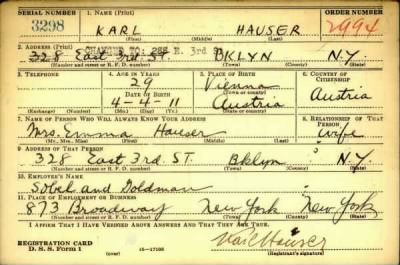 SERIAL NUMBER 1. NAME (Print) ORDER NUMBER
3298 KARL HAUSER 2994
(First) (Middle) (Last)
2. ADDRESS (Print) CHANGED TO: 288 E. 3rd
328 East 3rd. ST. BKLYN N.Y.
(Number and street or R. F. D. number) (Town) (County) (State)
3. TELEPHONE 4. AGE IN YEARS 5. PLACE OF BIRTH 6. COUNTRY OF CITIZENSHIP
29 Vienna
DATE OF BIRTH (Town or county)
4-14-11 Austria Austria
(Exchange) (Number) (Mo.) (Day) (Yr.) (State or country)
7. NAME OF PERSON WHO WILL ALWAYS KNOW YOUR ADDRESS 8. RELATIONSHIP OF THAT PERSON
Mrs. Emma Hauser wife
(Mr., Mrs., Miss) (First) (Middle) (Last)
9. ADDRESS OF THAT PERSON
328 East 3rd. ST. Bklyn N.Y.
(Number and street or R. F. D. number) (Town) (County) (State)
10. EMPLOYER'S NAME
Sobel and Goldman
11. PLACE OF EMPLOYMENT OR BUSINESS
873 Broadway New York New York
(Number and street or R. F. D. number) (Town) (County) (State)
I AFFIRM THAT I HAVE VERIFIED ABOVE ANSWERS AND THAT THEY ARE TRUE.
REGISTRATION CARD
D. S. S. Form 1 16-17105 Karl Hauser
(Registrant's signature)